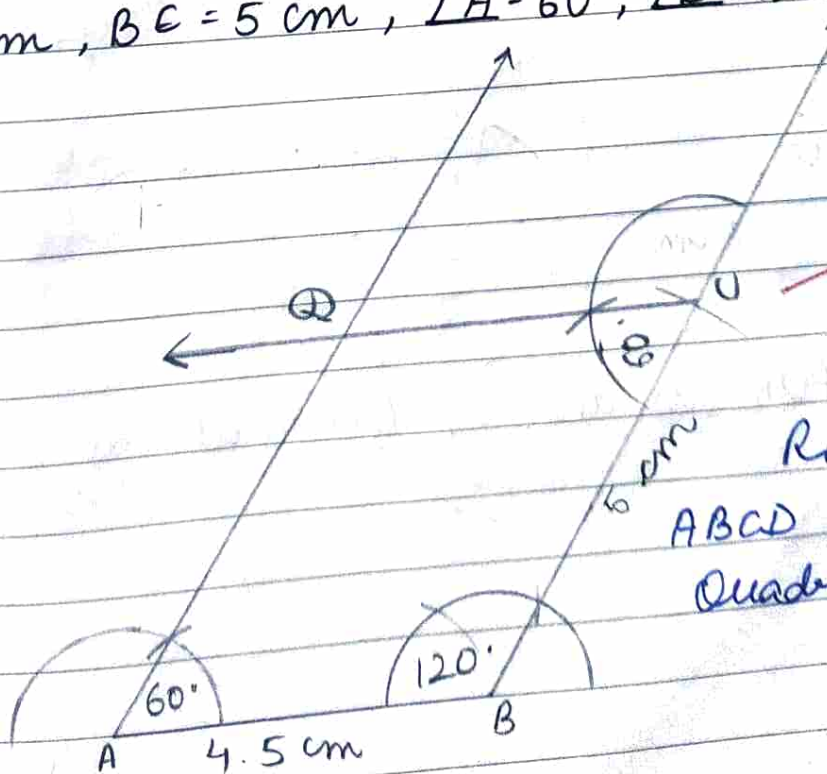 m, BC = 5 cm, ∠A = 60°,
D
C
60°
5 cm
ABCD
Quad
120°
60°
A
4.5 cm
B